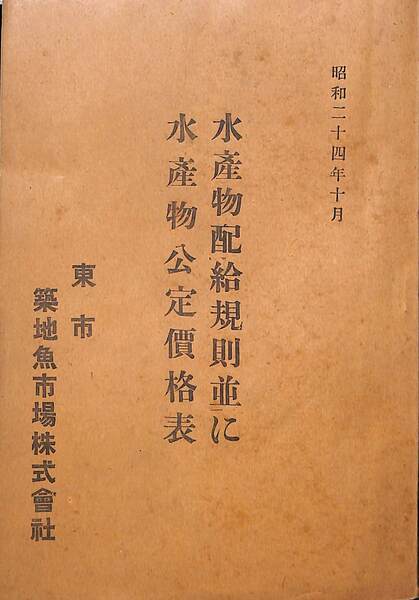 昭和二十四年十月
水產物配給規則並に
水產物公定價格表
東市
築地魚市場株式會社